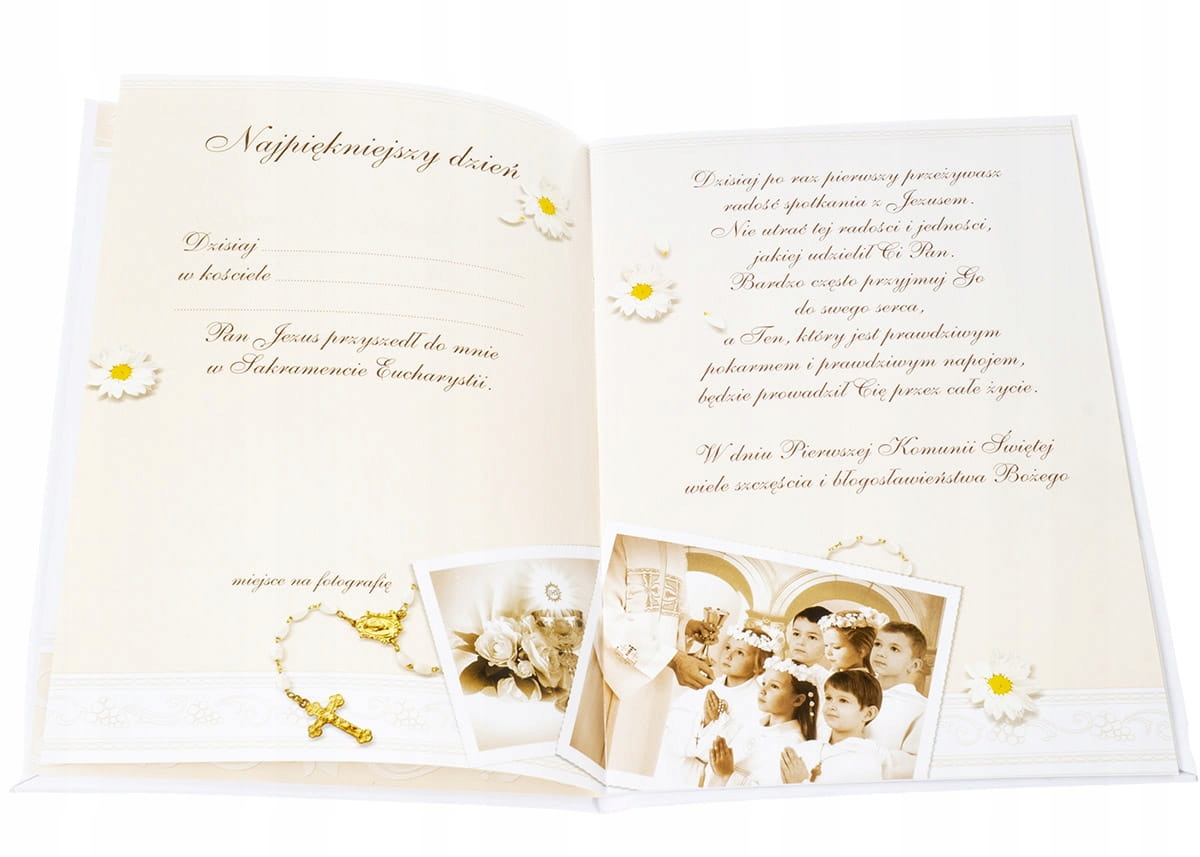 Najpiękniejszy dzień
Dzisiaj
w kościele
Pan Jezus przyszedł do mnie
w Sakramencie Eucharystii.
miejsce na fotografię
Dzisiaj po raz pierwszy przeżywasz
radość spotkania z Jezusem.
Nie utrać tej radości i jedności,
jakiej udzielił Ci Pan.
Bardzo często przyjmuj Go
do swego serca,
a Ten, który jest prawdziwym
pokarmem i prawdziwym napojem,
będzie prowadził Cię przez całe życie.
W dniu Pierwszej Komunii Świętej
wiele szczęścia i błogosławieństwa Bożego